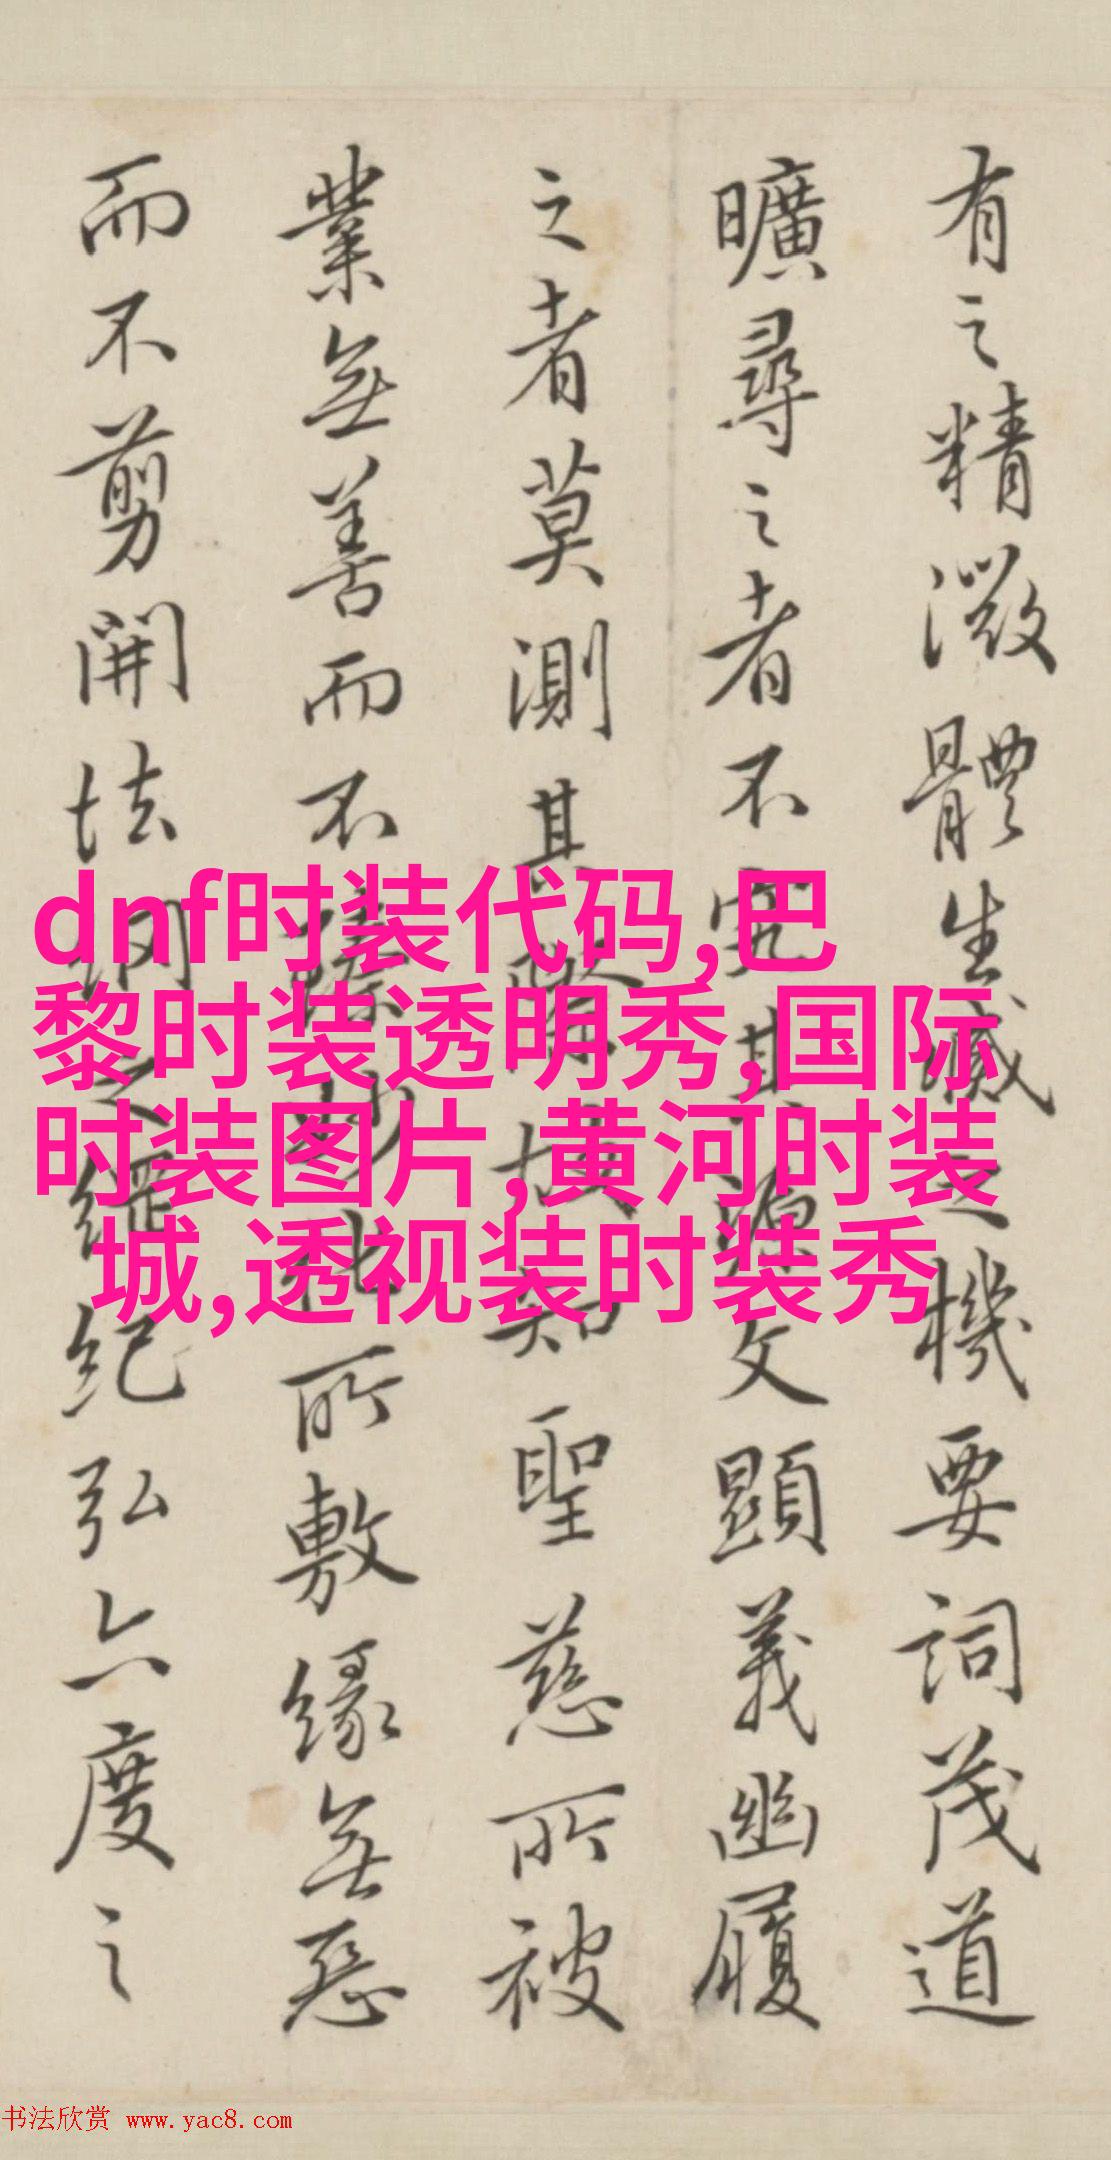 有之精微體生滅之機要詞茂道
曠尋之者不究其源文顯義幽履
之者莫測其際故知聖慈所被
業無善而不臻妙化所敷緣無惡
而不剪開法網之綱紀弘六度之
dnf时装代码,巴
黎时装透明秀,国际
时装图片,黄河时装
城,透视装时装秀
书法欣赏 www.yac8.com